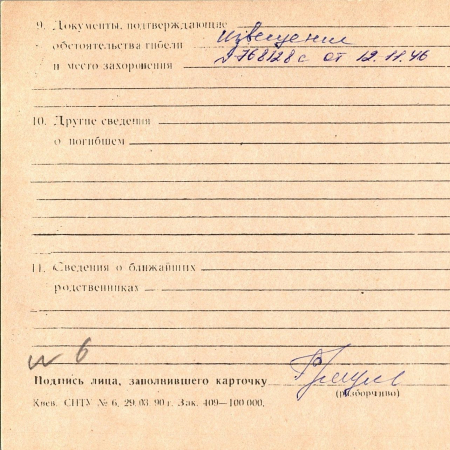 9. Документы, подтверждающие извещение
обстоятельства гибели
и место захоронения №768128с от 12.11.46
10. Другие сведения
о погибшем
11. Сведения о ближайших
родственниках
и 6
Подпись лица, заполнившего карточку
(разборчиво)
Киев. СПТУ № 6, 29.03.90 г. Зак. 409—100 000.